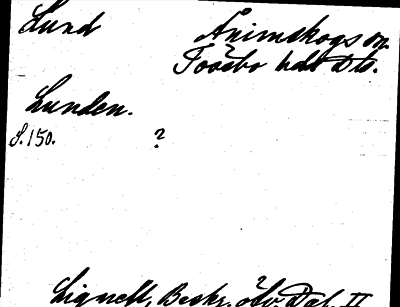 Lund Ånimskogs sn.
Tössbo hd Dls.
Lunden.
S. 150. ?
Lignell, Beskr. öfv. Dal. II